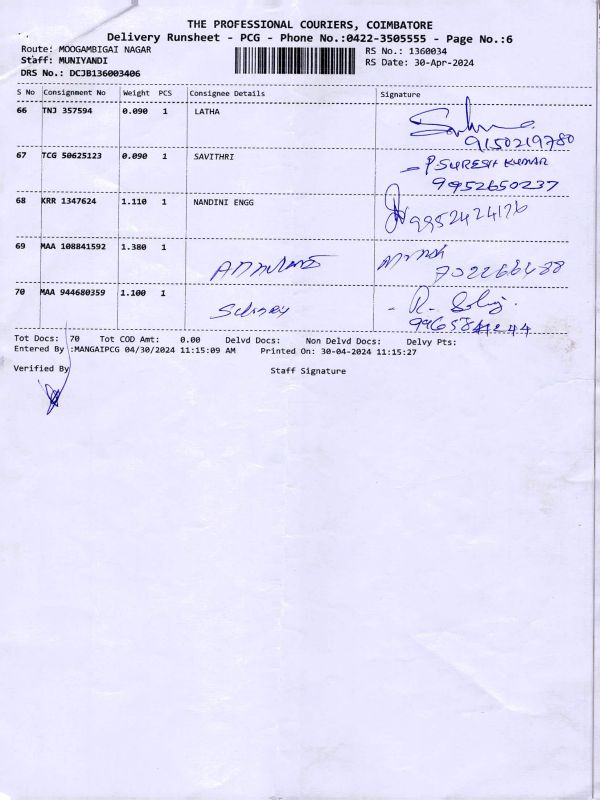 THE PROFESSIONAL COURIERS, COIMBATORE
Delivery Runsheet - PCG - Phone No.:0422-3505555 - Page No.:6
Route: MOOGAMBIGAI NAGAR RS No.: 1360034
Staff: MUNIYANDI RS Date: 30-Apr-2024
DRS No.: DCJB136003406
S No Consignment No Weight PCS Consignee Details Signature
66 TNJ 357594 0.090 1 LATHA
9150219780
67 TCG 50625123 0.090 1 SAVITHRI P.SURESH KUMAR
9952650237
68 KRR 1347624 1.110 1 NANDINI ENGG 9952424176
69 MAA 108841592 1.380 1
70 MAA 944680359 1.100 1
Tot Docs: 70 Tot COD Amt: 0.00 Delvd Docs: Non Delvd Docs: Delvy Pts:
Entered By :MANGAIPCG 04/30/2024 11:15:09 AM Printed On: 30-04-2024 11:15:27
Verified By Staff Signature